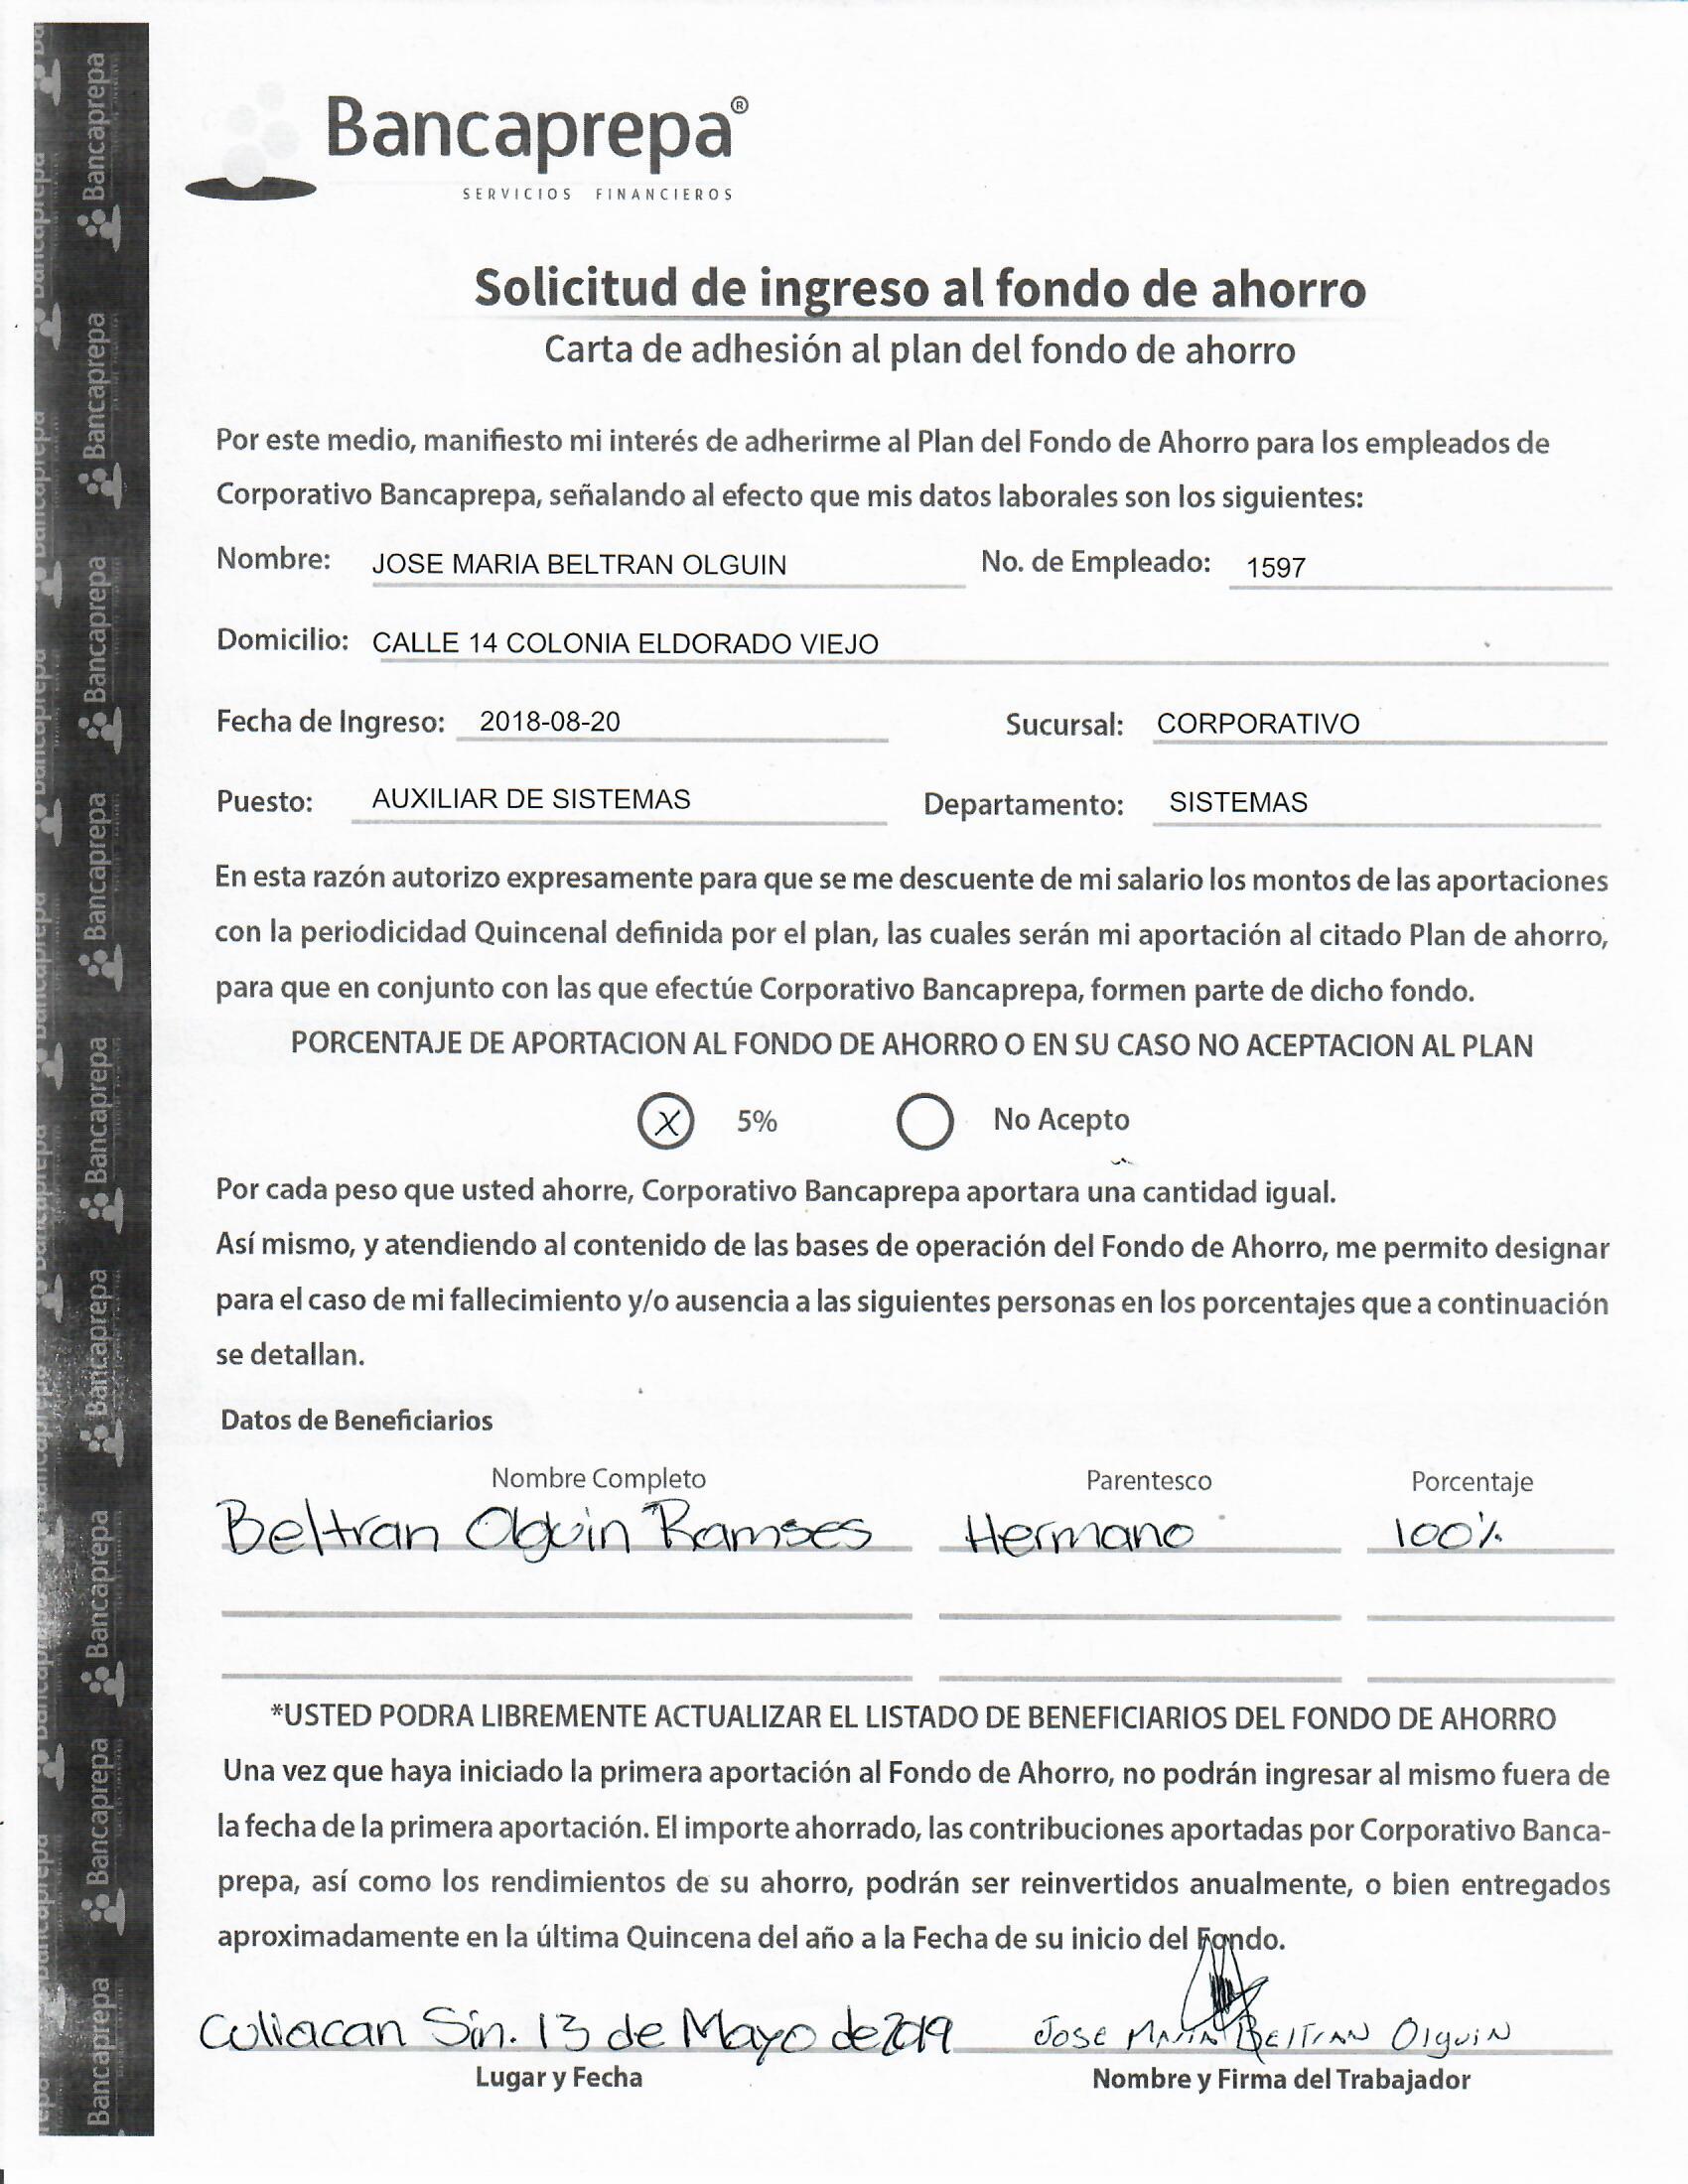 Bancaprepa®
SERVICIOS FINANCIEROS
Solicitud de ingreso al fondo de ahorro
Carta de adhesión al plan del fondo de ahorro
Por este medio, manifiesto mi interés de adherirme al Plan del Fondo de Ahorro para los empleados de
Corporativo Bancaprepa, señalando al efecto que mis datos laborales son los siguientes:
Nombre: JOSE MARIA BELTRAN OLGUIN No. de Empleado: 1597
Domicilio: CALLE 14 COLONIA ELDORADO VIEJO
Fecha de Ingreso: 2018-08-20 Sucursal: CORPORATIVO
Puesto: AUXILIAR DE SISTEMAS Departamento: SISTEMAS
En esta razón autorizo expresamente para que se me descuente de mi salario los montos de las aportaciones
con la periodicidad Quincenal definida por el plan, las cuales serán mi aportación al citado Plan de ahorro,
para que en conjunto con las que efectúe Corporativo Bancaprepa, formen parte de dicho fondo.
PORCENTAJE DE APORTACION AL FONDO DE AHORRO O EN SU CASO NO ACEPTACION AL PLAN
X 5% No Acepto
Por cada peso que usted ahorre, Corporativo Bancaprepa aportara una cantidad igual.
Así mismo, y atendiendo al contenido de las bases de operación del Fondo de Ahorro, me permito designar
para el caso de mi fallecimiento y/o ausencia a las siguientes personas en los porcentajes que a continuación
se detallan.
Datos de Beneficiarios
Nombre Completo Parentesco Porcentaje
Beltran Olguin Ramses Hermano 100%
*USTED PODRA LIBREMENTE ACTUALIZAR EL LISTADO DE BENEFICIARIOS DEL FONDO DE AHORRO
Una vez que haya iniciado la primera aportación al Fondo de Ahorro, no podrán ingresar al mismo fuera de
la fecha de la primera aportación. El importe ahorrado, las contribuciones aportadas por Corporativo Banca-
prepa, así como los rendimientos de su ahorro, podrán ser reinvertidos anualmente, o bien entregados
aproximadamente en la última Quincena del año a la Fecha de su inicio del Fondo.
Culiacan Sin. 13 de Mayo de 2019 Jose Maria Beltran Olguin
Lugar y Fecha Nombre y Firma del Trabajador
Bancaprepa
Bancaprepa
Bancaprepa
Bancaprepa
Bancaprepa
Bancaprepa
Bancaprepa
Bancaprepa
Bancaprepa